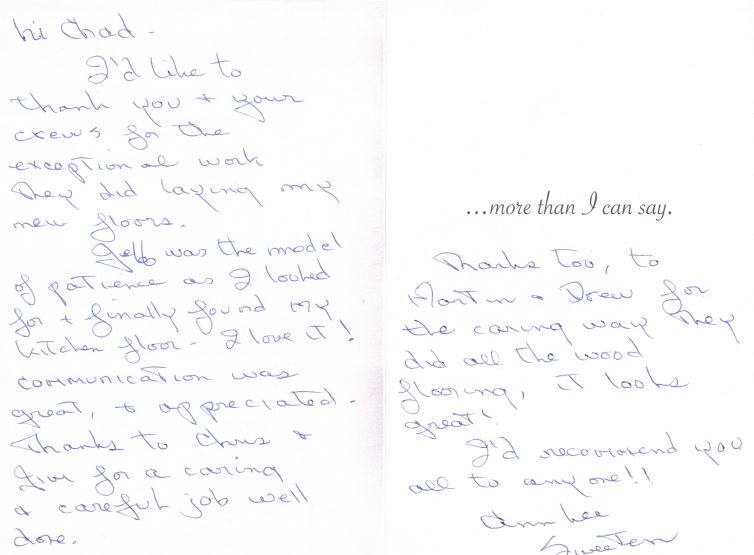 hi Chad -
I'd like to
thank you + your
crews for the
exceptional work
they did laying my
new floors.
Jeb was the model
of patience as I looked
for + finally found my
kitchen floor - I love it!
communication was
great, + appreciated -
Thanks to Chris +
Jim for a caring
+ careful job well
done.
...more than I can say.
Thanks too, to
Martin + Drew for
the caring way they
did all the wood
flooring, it looks
great!
I'd recommend you
all to anyone!!
Ann Lee
Sweeten